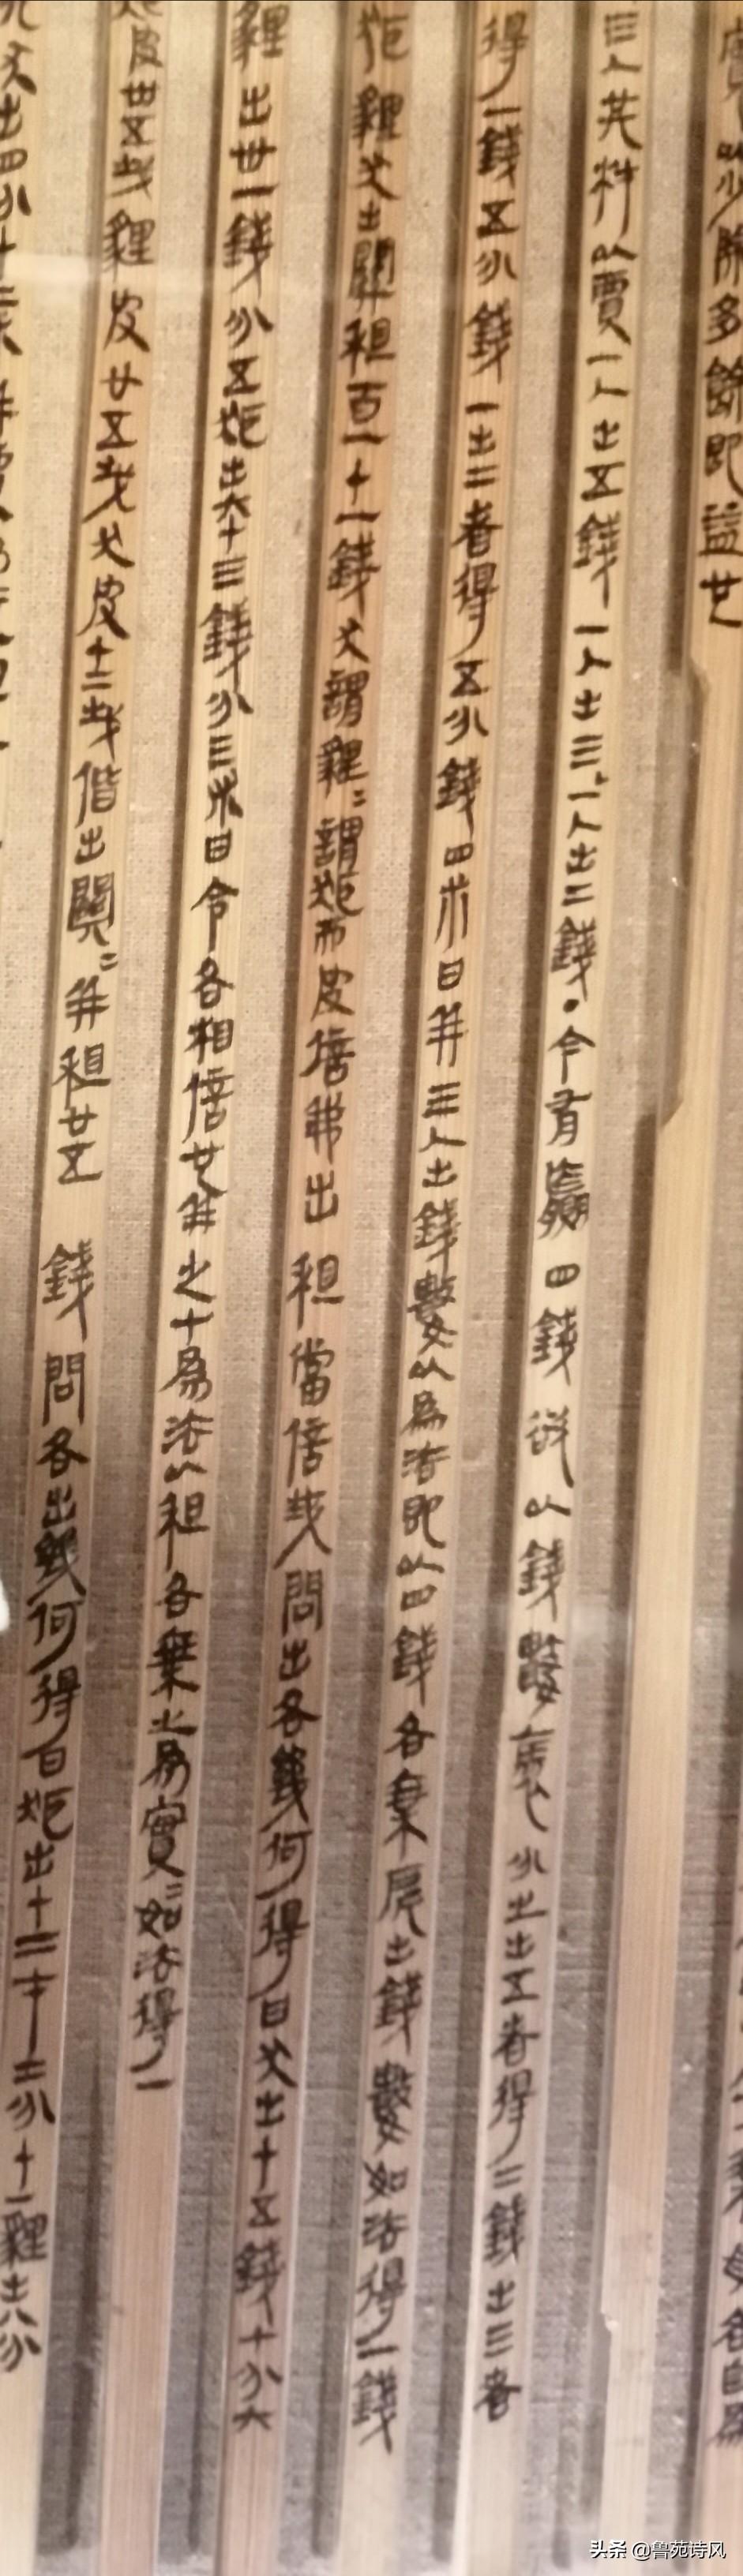 以少除多餘即益廿
三人共材以賈一人出五錢一人出三一人出二錢●今有贏四錢欲以錢數衰分之出五者得二錢出三者
得一錢五分錢一出二者得五分錢四朮曰并三人出錢數以為法即以四錢各乘所出錢數如法得一錢
狐貍犬出關租百一十一錢犬謂貍=謂狐而皮倍我出租當倍我問出各幾何得曰犬出十五錢十分六
貍出卅一錢分五狐出六十三錢分三朮曰令各相倍也并之七為法以租各乘之為實=如法得一
狐皮卅五𢦏貍皮廿五𢦏犬皮十二𢦏偕出關=并租廿五錢問各出幾何得曰狐出十二七十二分十一貍出八分
出四分十二朮并賈為
頭条 @鲁苑诗风